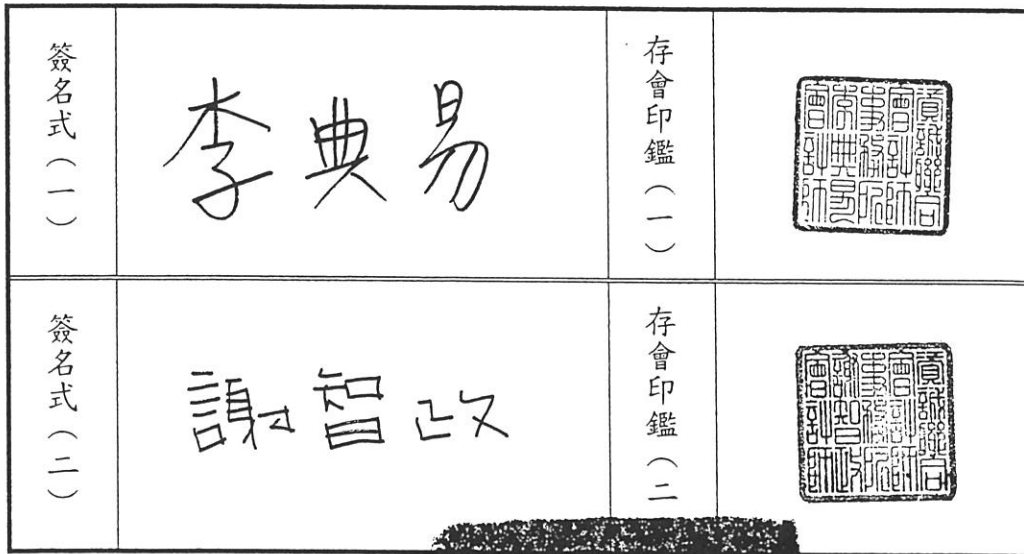 簽名式(一)
李典易
存會印鑑(一)
資誠聯合
會計師
事務所
李典易
會計師
簽名式(二)
謝智政
存會印鑑(二
資誠聯合
會計師
事務所
謝智政
會計師